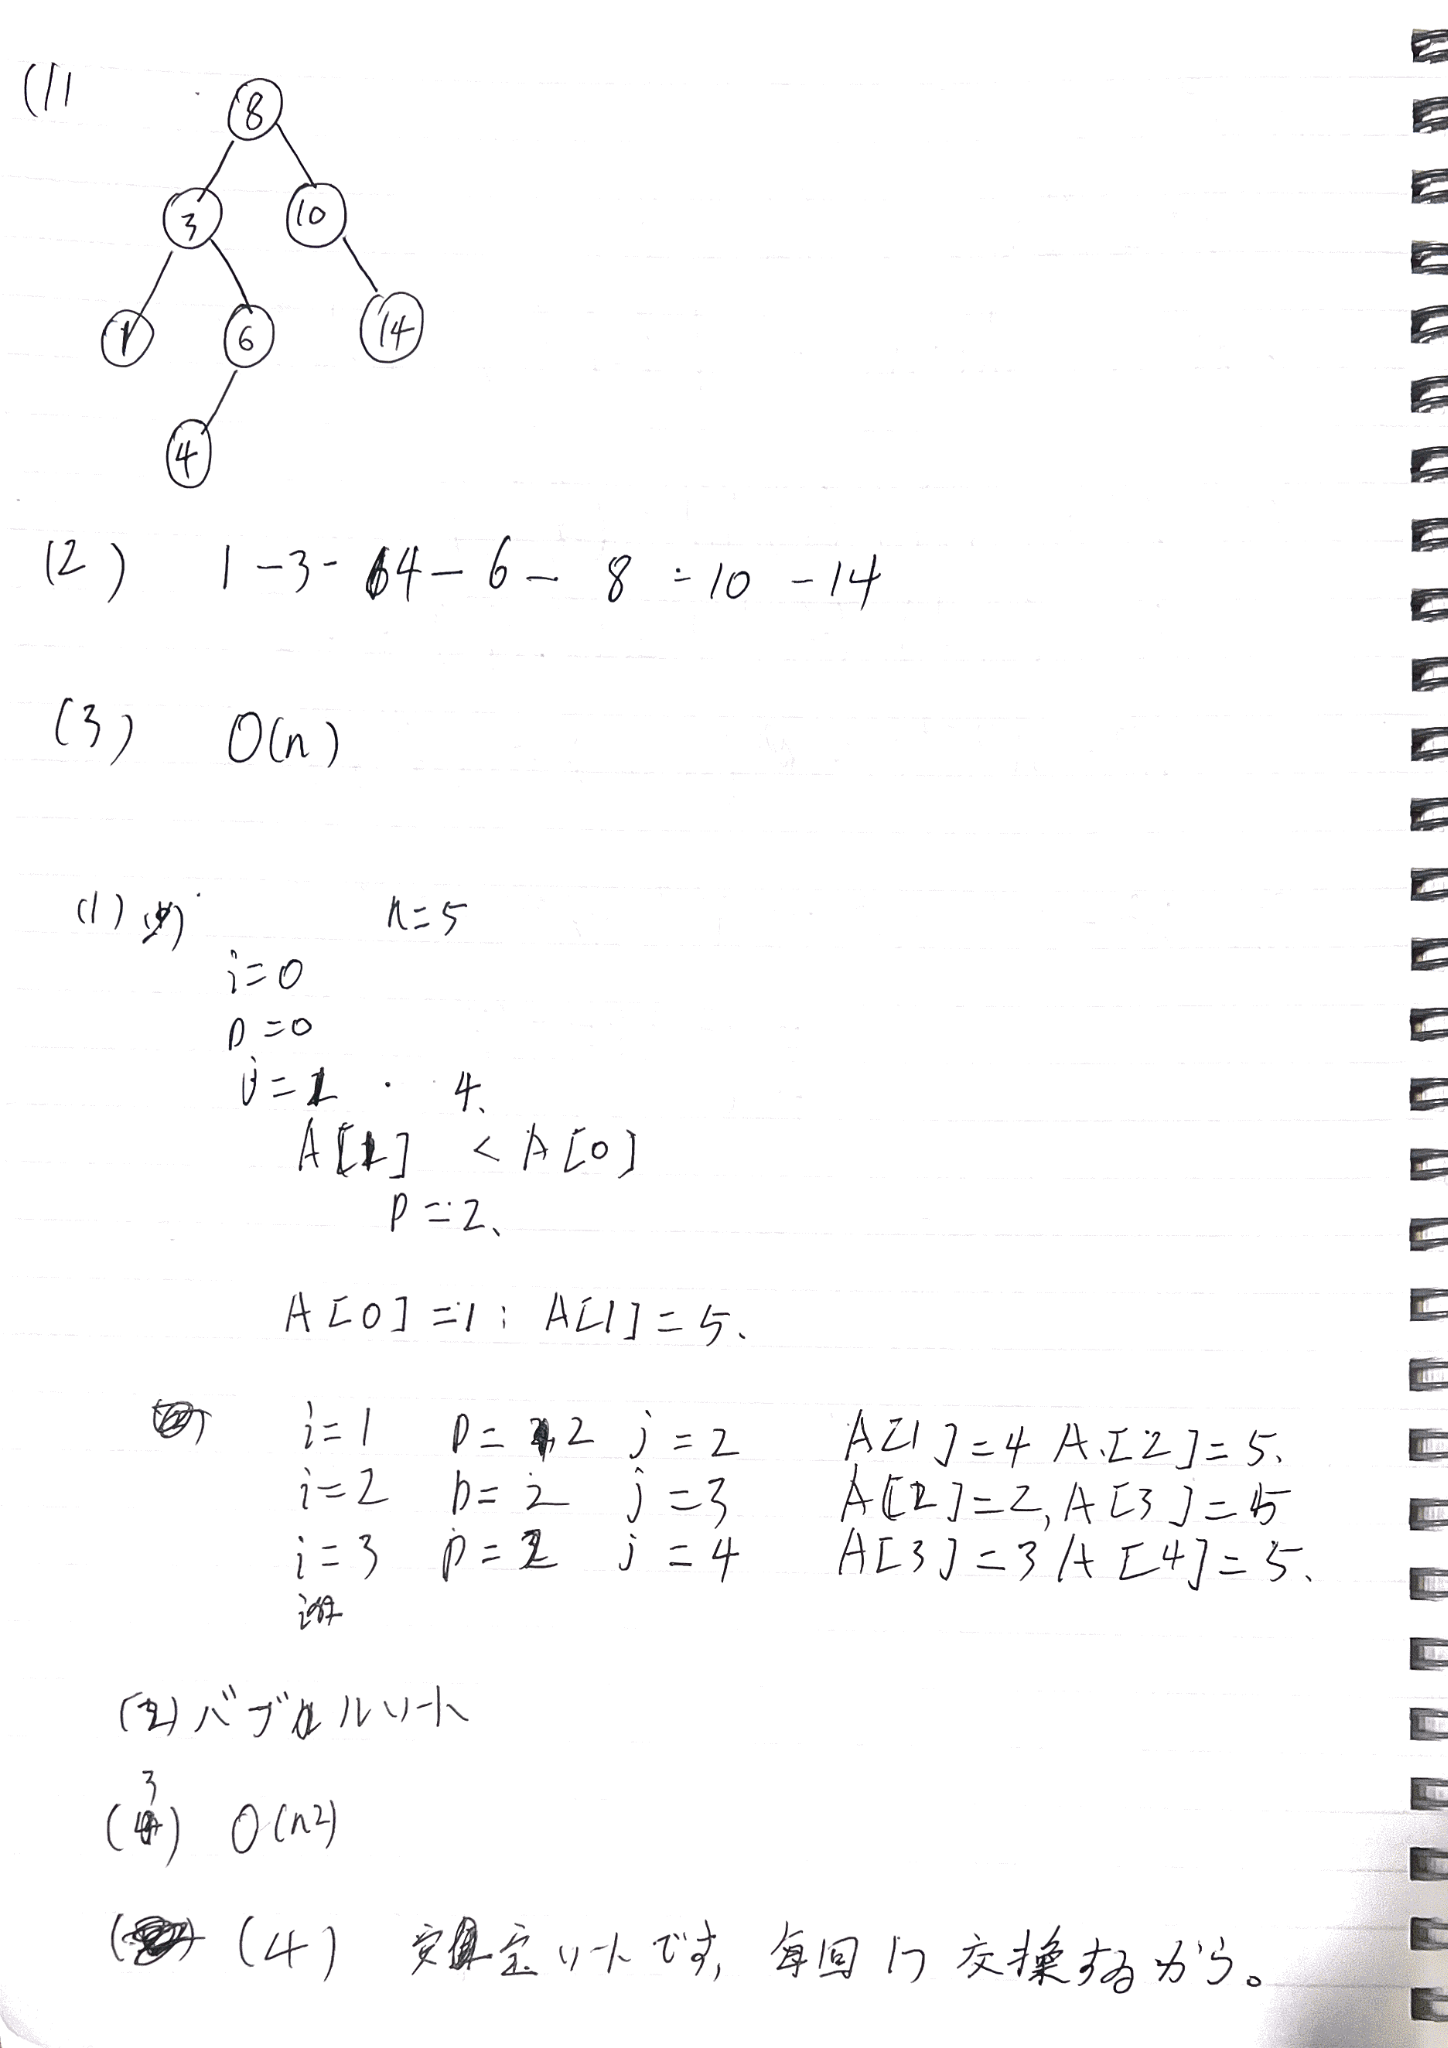 (1)
8
3 10
1 6 14
4
(2) 1-3-4-6-8-10-14
(3) O(n)
(1) n=5
i=0
p=0
j=1 4.
A[1] < A[0]
p=2、
A[0]=1; A[1]=5.
i=1 p=2 j=2 A[1]=4 A[2]=5.
i=2 p=2 j=3 A[2]=2, A[3]=5
i=3 p=2 j=4 A[3]=3 A[4]=5.
(2) バブルソート
(3) O(n2)
(4) 安定ソートです, 毎回に交換するから。